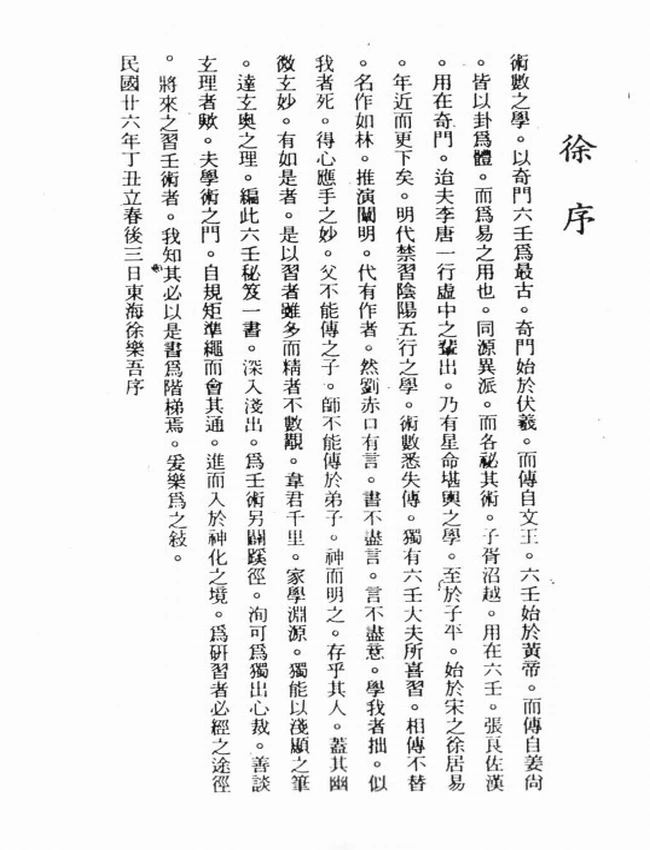 徐序
術數之學。以奇門六壬爲最古。奇門始於伏羲。而傳自文王。六壬始於黃帝。而傳自姜尙
。皆以卦爲體。而爲易之用也。同源異派。而各祕其術。子胥沼越。用在六壬。張良佐漢
。用在奇門。迨夫李唐一行虛中之輩出。乃有星命堪輿之學。至於子平。始於宋之徐居易
。年近而更下矣。明代禁習陰陽五行之學。術數悉失傳。獨有六壬大夫所喜習。相傳不替
。名作如林。推演闡明。代有作者。然劉赤口有言。書不盡言。言不盡意。學我者拙。似
我者死。得心應手之妙。父不能傳之子。師不能傳於弟子。神而明之。存乎其人。蓋其幽
微玄妙。有如是者。是以習者雖多而精者不數覯。韋君千里。家學淵源。獨能以淺顯之筆
。達玄奧之理。編此六壬秘笈一書。深入淺出。爲壬術另闢蹊徑。洵可爲獨出心裁。善談
玄理者歟。夫學術之門。自規矩準繩而會其通。進而入於神化之境。爲研習者必經之途徑
。將來之習壬術者。我知其必以是書爲階梯焉。爰樂爲之敍。
民國廿六年丁丑立春後三日東海徐樂吾序